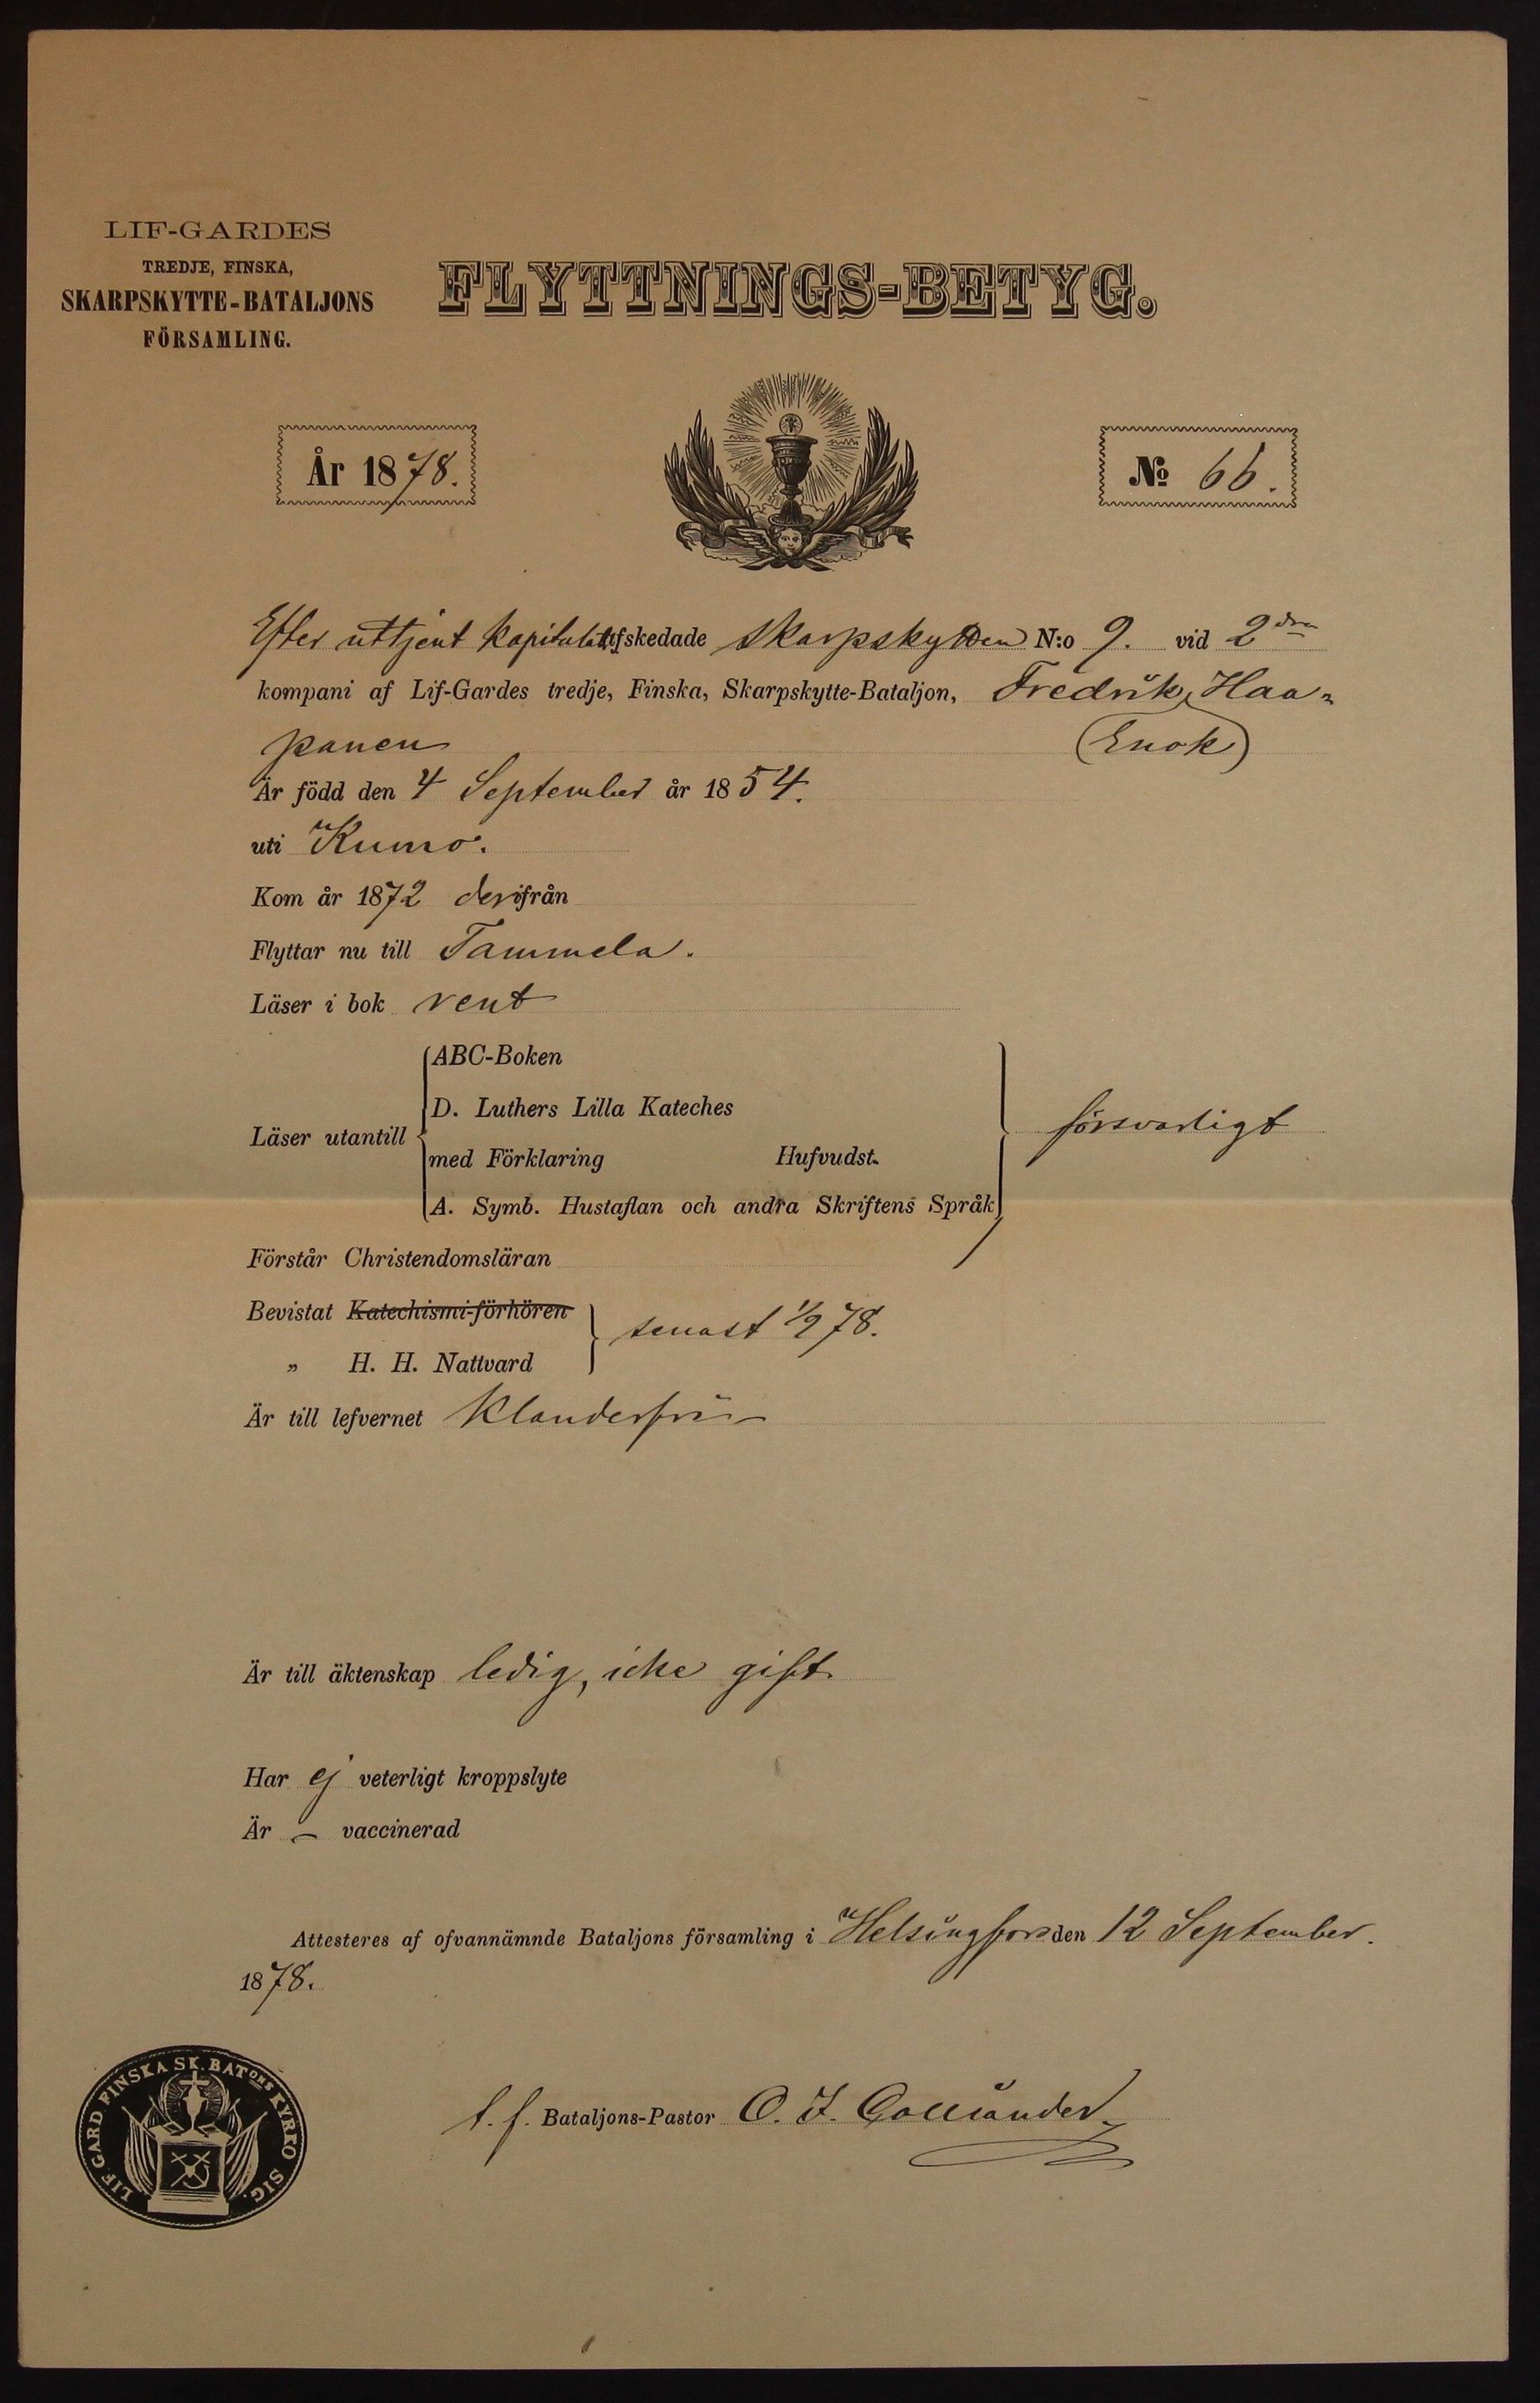 LIF-GARDES
TREDJE, FINSKA,
SKARPSKYTTE-BATALJONS
FÖRSAMLING.
FLYTTNINGS-BETYG.
År 1878.
No 66.
Efter uttjent Kapitulat. afskedade Skarpskytten N:o 9. vid 2dra
kompani af Lif-Gardes tredje, Finska, Skarpskytte-Bataljon, Fredrik Haa-
panen (Enok)
Är född den 4 September år 1854.
uti Kumo.
Kom år 1872 derifrån
Flyttar nu till Tammela.
Läser i bok rent
Läser utantill
ABC-Boken
D. Luthers Lilla Kateches
med Förklaring Hufvudst.
A. Symb. Hustaflan och andra Skriftens Språk
försvarligt
Förstår Christendomsläran
Bevistat Katechismi-förhören
" H. H. Nattvard
senast 1/9 78.
Är till lefvernet Klanderfri
Är till äktenskap ledig, icke gift
Har ej veterligt kroppslyte
Är – vaccinerad
Attesteres af ofvannämnde Bataljons församling i Helsingfors den 12 September.
1878.
t. f. Bataljons-Pastor O. I. Colliander
LIF GARD FINSKA SK. BATONS KYRKO SIG.